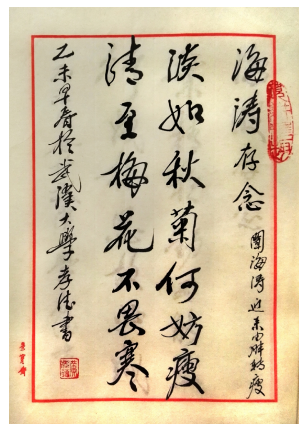 海涛存念
闻海涛近来由胖转瘦
淡如秋菊何妨瘦
清至梅花不畏寒
乙未早春於武漢大學 书
榮寶齋